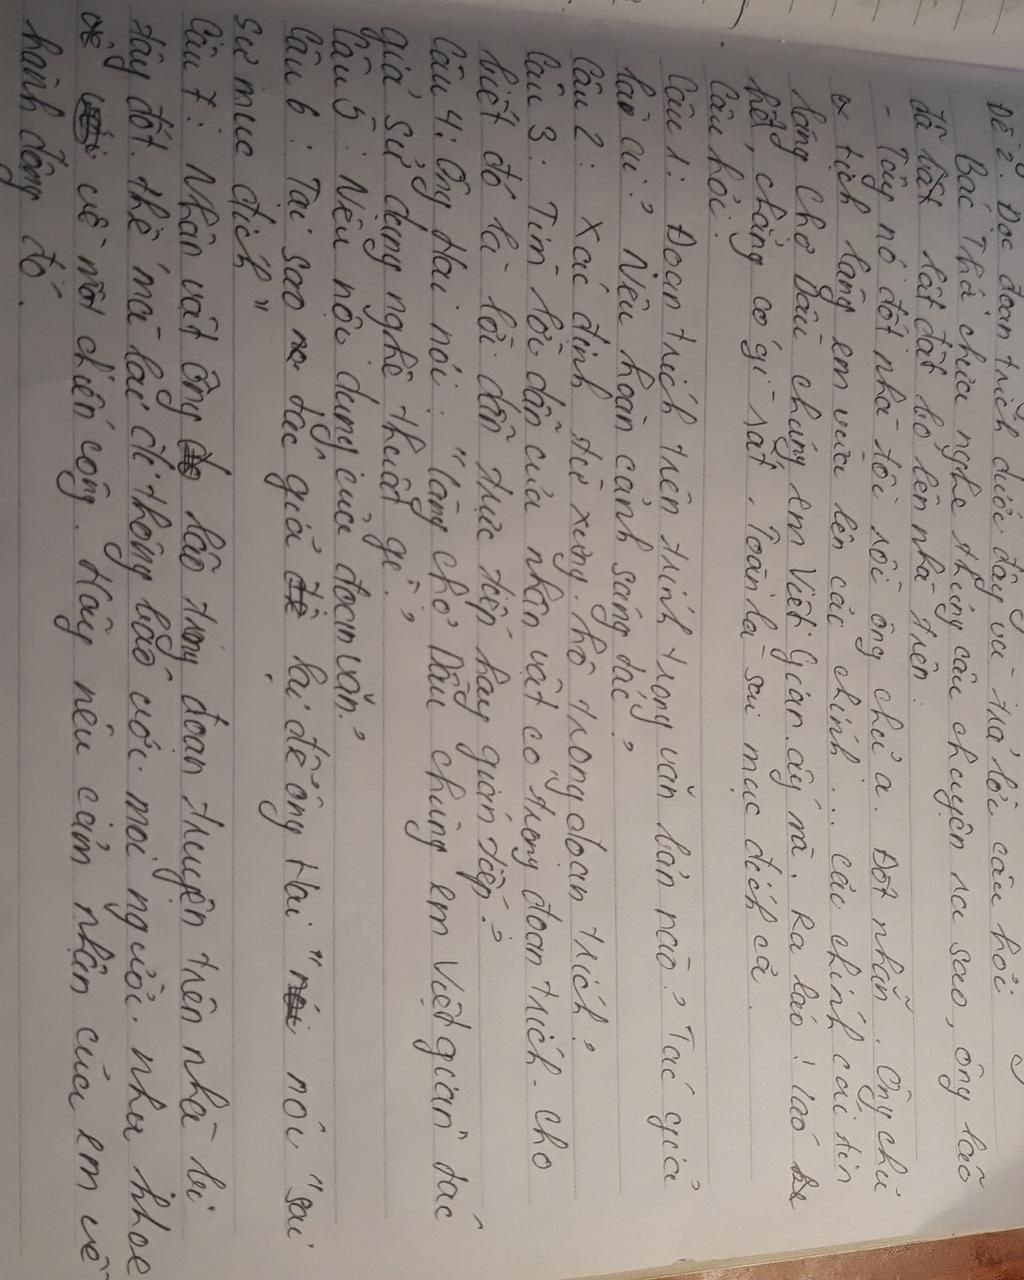 Đề 2. Đọc đoạn trích dưới đây và trả lời câu hỏi
Bác Thứ chưa nghe thủng câu chuyện ra sao, ông lão
đã lật đật bỏ lên nhà trên.
- Tây nó đốt nhà tôi rồi ông chủ ạ. Đốt nhẵn. Ông chủ
tịch làng em vừa lên cải chính... cải chính cái tin
làng chợ Dầu chúng em Việt gian ấy mà. Ra láo! láo
hết, chẳng có gì sất. Toàn là sai mục đích cả.
Câu hỏi:
Câu 1: Đoạn trích trên trích trong văn bản nào? Tác giả
là ai? Nêu hoàn cảnh sáng tác?
Câu 2: Xác định từ xưng hô trong đoạn trích?
Câu 3: Tìm lời dẫn của nhân vật có trong đoạn trích. Cho
biết đó là lời dẫn trực tiếp hay gián tiếp?
Câu 4: Ông Hai nói: "làng chợ Dầu chúng em Việt gian" tác
giả sử dụng nghệ thuật gì?
Câu 5: Nêu nội dung của đoạn văn?
Câu 6: Tại sao tác giả lại để ông Hai "nói "sai
sự mục đích"
Câu 7: Nhân vật ông lão trong đoạn truyện trên nhà bị
tây đốt thế mà lại đi thông báo với mọi người như khoe
về một chiến công. Hãy nêu cảm nhận của em về
hành động đó.